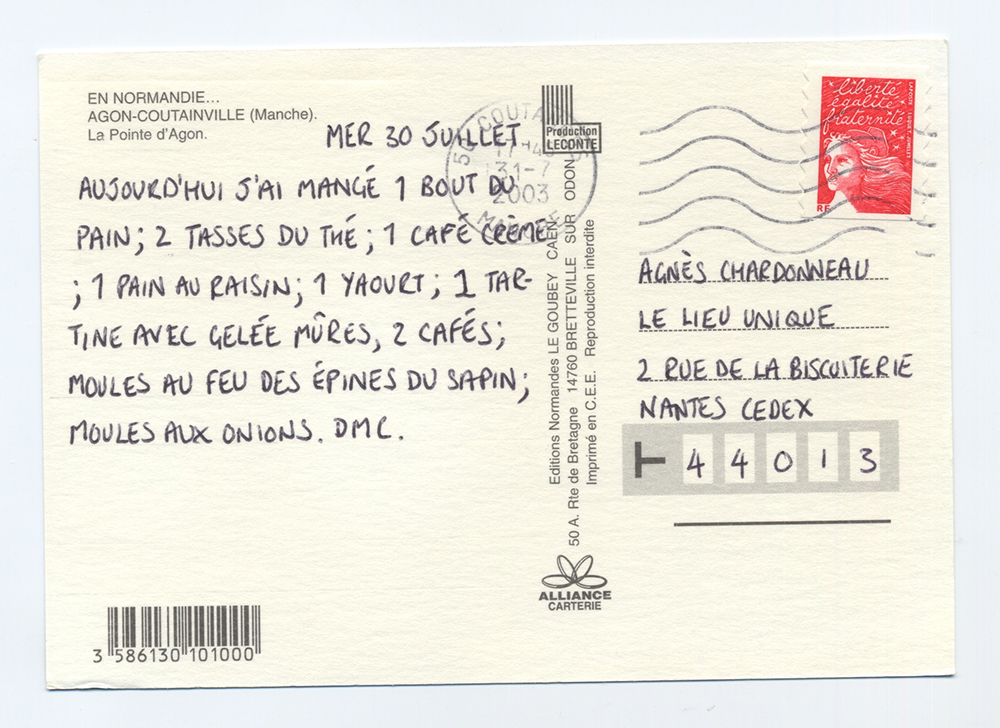 EN NORMANDIE...
AGON-COUTAINVILLE (Manche).
La Pointe d'Agon.
MER 30 JUILLET
AUJOURD'HUI J'AI MANGÉ 1 BOUT DU
PAIN; 2 TASSES DU THÉ; 1 CAFÉ CRÈME
; 1 PAIN AU RAISIN; 1 YAOURT; 1 TAR-
TINE AVEC GELÉE MÛRES, 2 CAFÉS;
MOULES AU FEU DES ÉPINES DU SAPIN;
MOULES AUX ONIONS. DMC.
3 586130 101000
Production
LECONTE
Editions Normandes LE GOUBEY CAEN
50 A. Rte de Bretagne 14760 BRETTEVILLE SUR ODON
Imprimé en C.E.E. Reproduction interdite
ALLIANCE
CARTERIE
31-7
2003
liberté
égalité
fraternité
RF
AGNÈS CHARDONNEAU
LE LIEU UNIQUE
2 RUE DE LA BISCUITERIE
NANTES CEDEX
44013